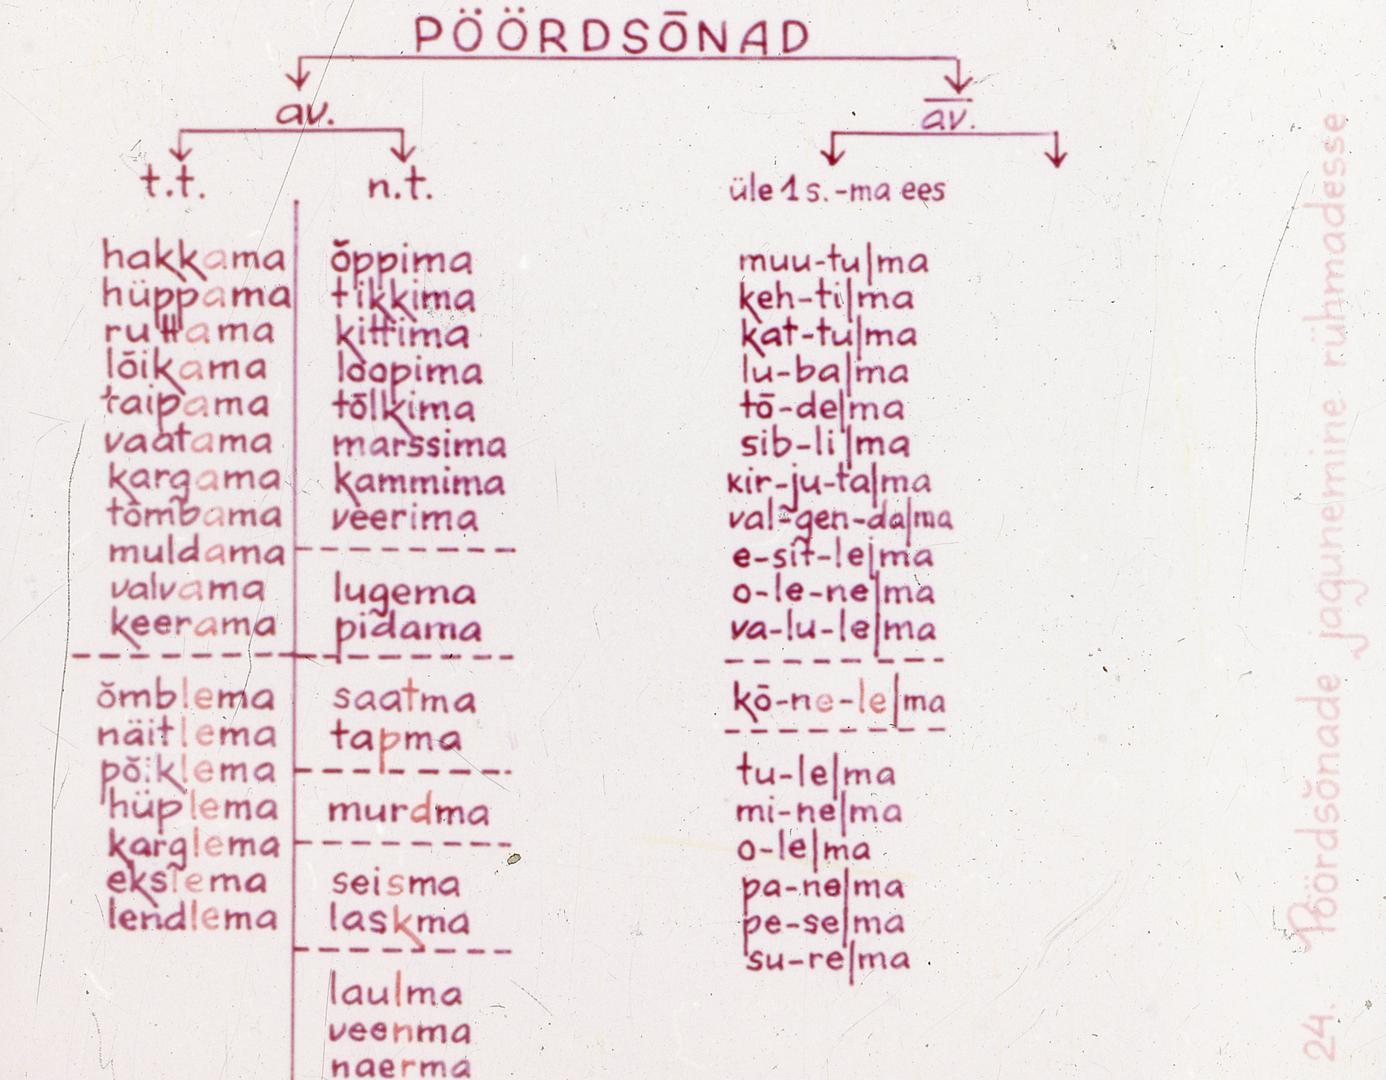 PÖÖRDSÕNAD
av.
t.t.
hakkama
hüppama
ruttama
lõikama
taipama
vaatama
kargama
tõmbama
muldama
valvama
keerama
õmblema
näitlema
põiklema
hüplema
karglema
ekslema
lendlema
n.t.
õppima
tikkima
kittima
loopima
tõlkima
marssima
kammima
veerima
lugema
pidama
saatma
tapma
murdma
seisma
laskma
laulma
veenma
naerma
av.
üle 1 s. -ma ees
muu-tu|ma
keh-ti|ma
kat-tu|ma
lu-ba|ma
tõ-de|ma
sib-li|ma
kir-ju-ta|ma
val-gen-da|ma
e-sit-le|ma
o-le-ne|ma
va-lu-le|ma
kõ-ne-le|ma
tu-le|ma
mi-ne|ma
o-le|ma
pa-ne|ma
pe-se|ma
su-re|ma
24. Pöördsõnade jagunemine rühmadesse